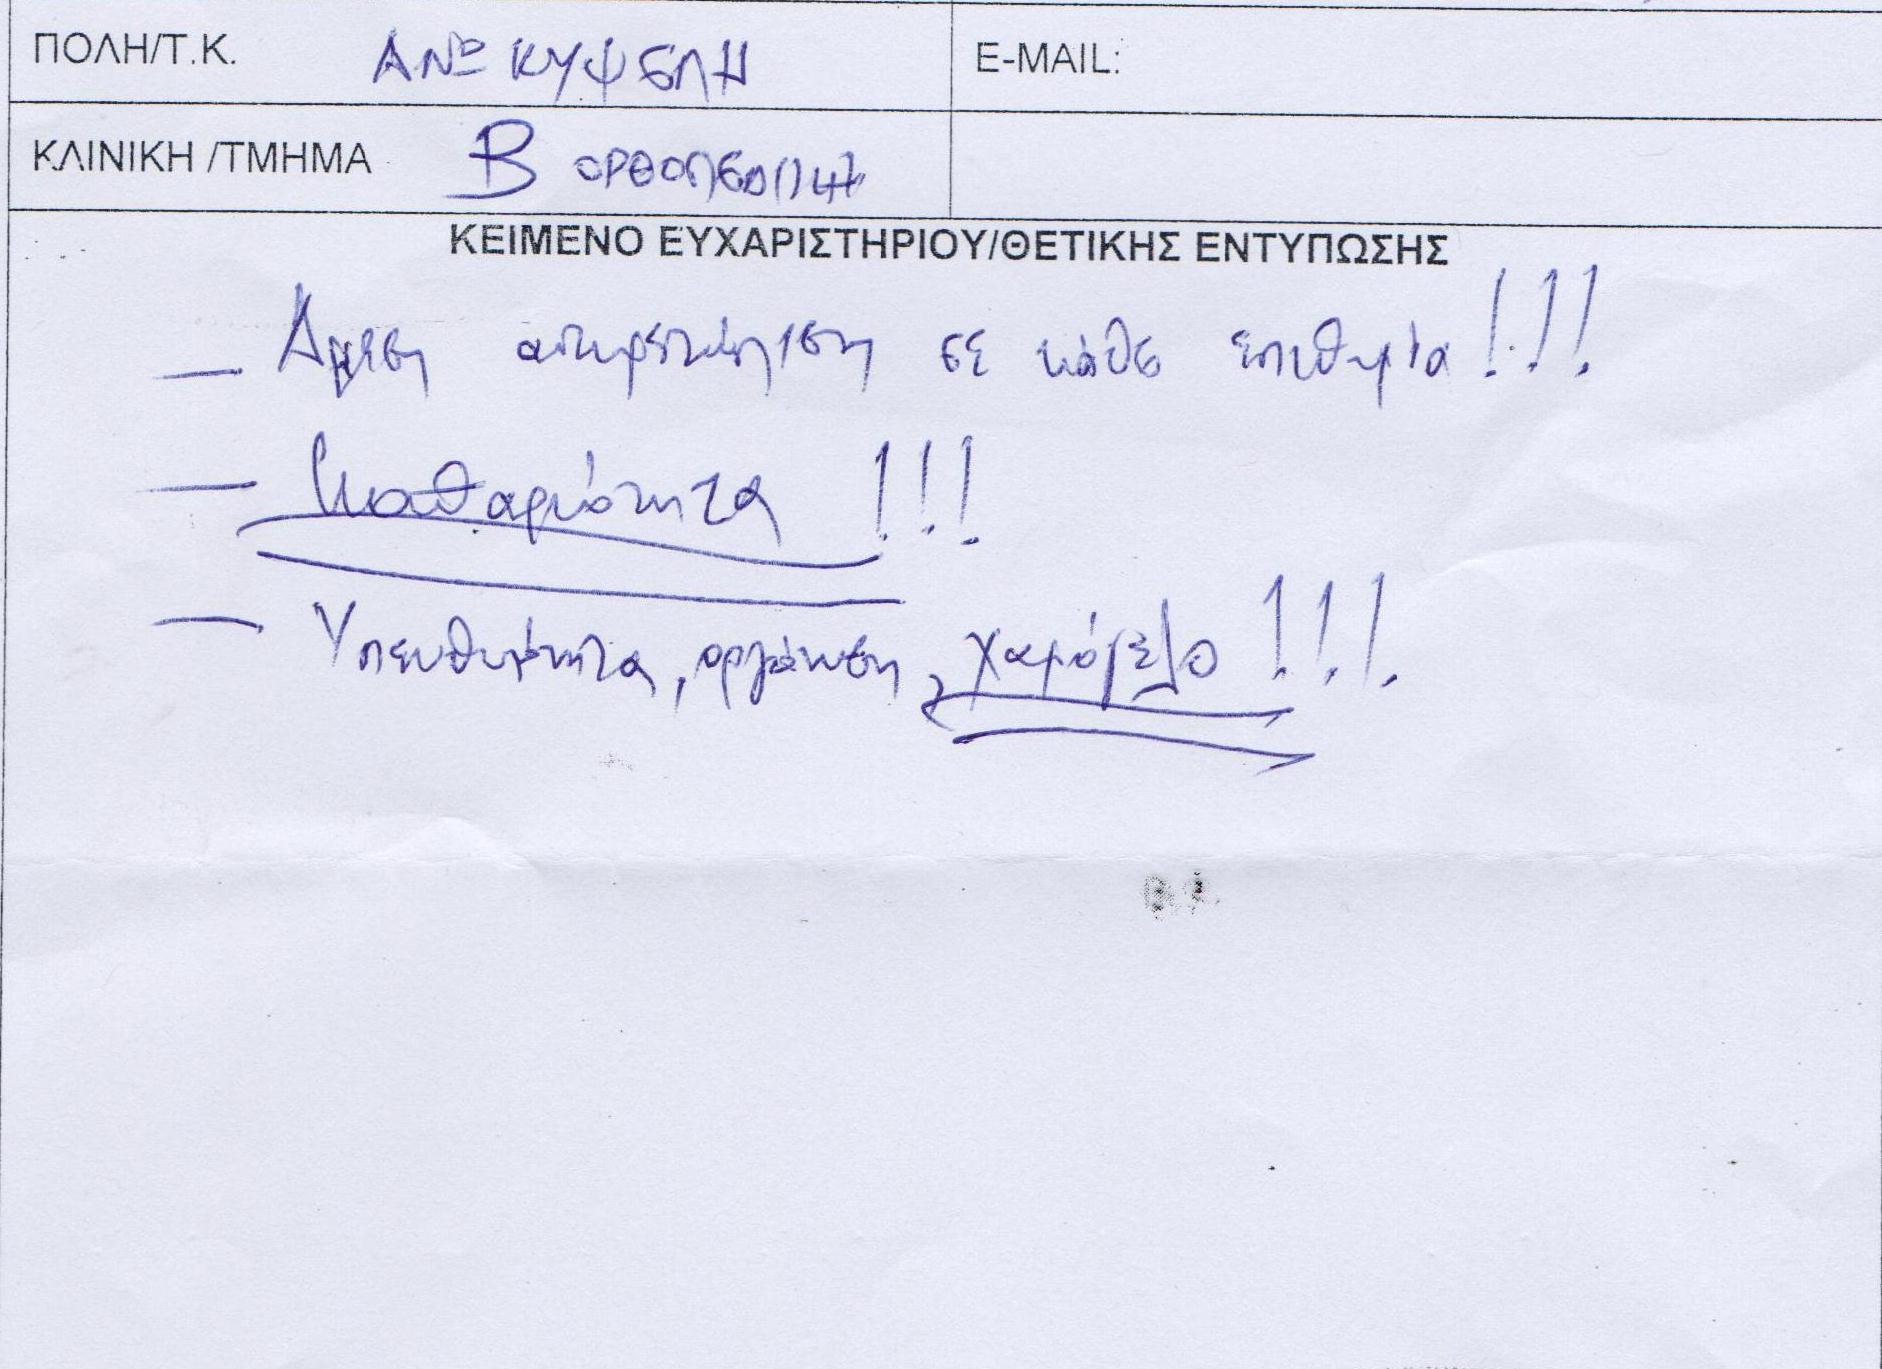 ΠΟΛΗ/Τ.Κ. ΑΝΩ ΚΥΨΕΛΗ E-MAIL:
ΚΛΙΝΙΚΗ /ΤΜΗΜΑ Β ΟΡΘΟΠΕΔΙΚΗ
ΚΕΙΜΕΝΟ ΕΥΧΑΡΙΣΤΗΡΙΟΥ/ΘΕΤΙΚΗΣ ΕΝΤΥΠΩΣΗΣ
— Άμεση αντιμετώπιση σε κάθε επιθυμία!!!
— Καθαριότητα !!!
— Υπευθυνότητα, οργάνωση, χαμόγελο !!!